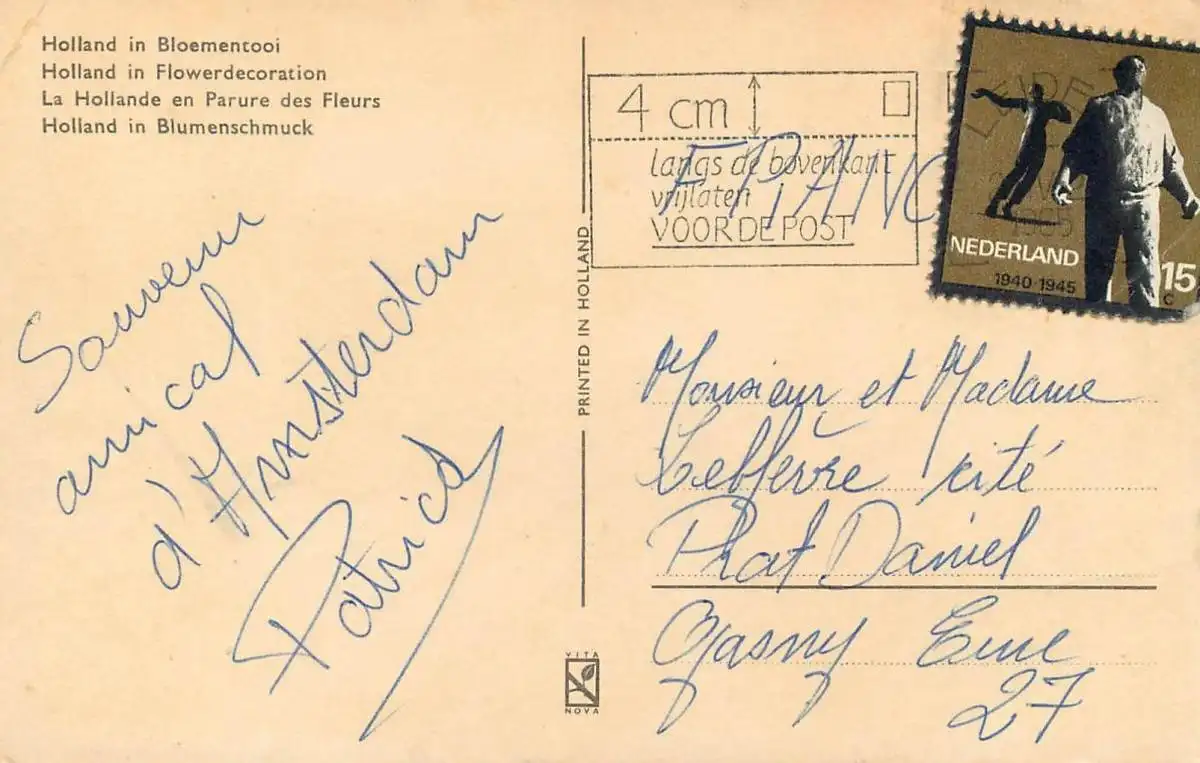 Holland in Bloementooi
Holland in Flowerdecoration
La Hollande en Parure des Fleurs
Holland in Blumenschmuck
Souvenir
amical
d'Amsterdam
Patrick
PRINTED IN HOLLAND
VITA
NOVA
4 cm
langs de bovenkant
vrijlaten
VOOR DE POST
FRANC
NEDERLAND
1940-1945
15
C
Monsieur et Madame
Leffèvre cité
Phat Daniel
Gasny Eure
27